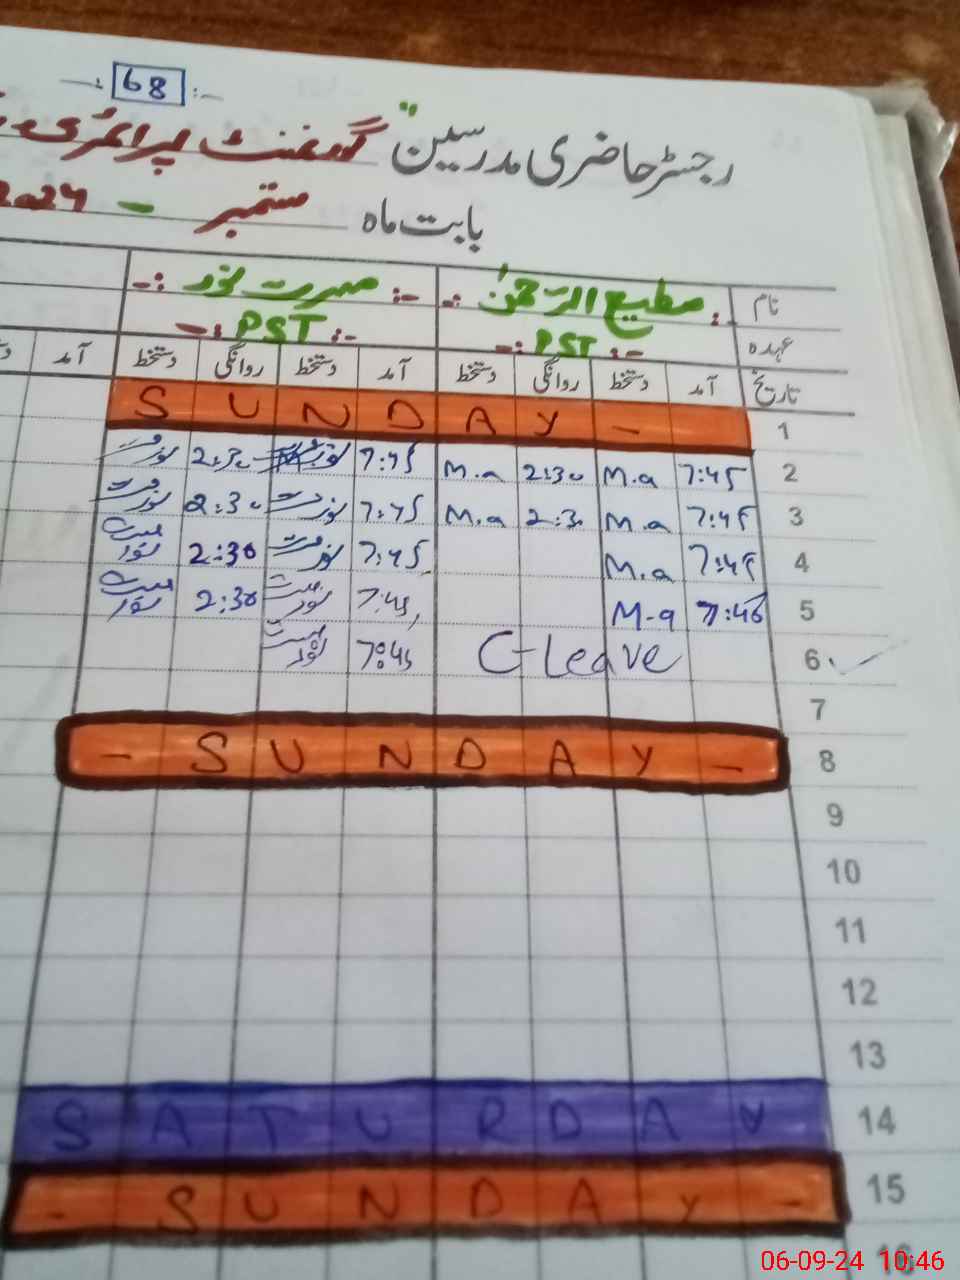 -: 68 :-
رجسٹر حاضری مدرسین "گورنمنٹ پرائمری
بابت ماہ ستمبر - 2024
نام :- مطیع الرحمٰن -: :- مسرت نور -:
عہدہ :- PST -: :- PST -:
تاریخ آمد دستخط روانگی دستخط آمد دستخط روانگی دستخط آمد
1 SUNDAY -
2 7:45 M.a 2:30 M.a 7:45 2:30
3 7:45 M.a 2:30 M.a 7:45 مسرت نور 2:30 مسرت نور
4 7:45 M.a 7:45 مسرت نور 2:30 مسرت نور
5 7:46 M-a 7:45 مسرت نور 2:30 مسرت نور
6 C-Leave 7:45 مسرت نور
7
8 - SUNDAY -
9
10
11
12
13
14 SATURDAY
15 - SUNDAY -
16
06-09-24 10:46